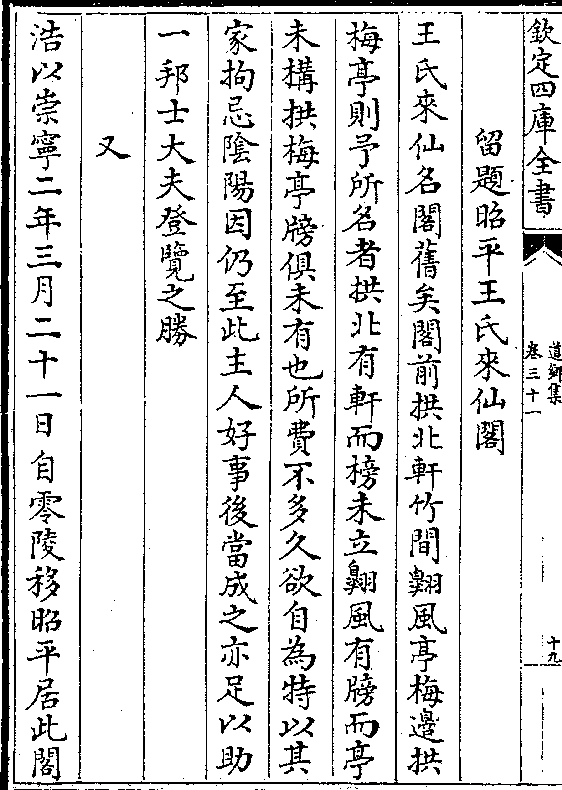 欽定四庫全書
道鄉集
卷三十一
十九
留題昭平王氏來仙閣
王氏來仙名閣舊矣閣前拱北軒竹間翺風亭梅邊拱
梅亭則予所名者拱北有軒而榜未立翺風有牓而亭
未構拱梅亭牓俱未有也所費不多久欲自為特以其
家拘忌陰陽因仍至此主人好事後當成之亦足以助
一邦士大夫登覽之勝
又
浩以崇寧二年三月二十一日自零陵移昭平居此閣